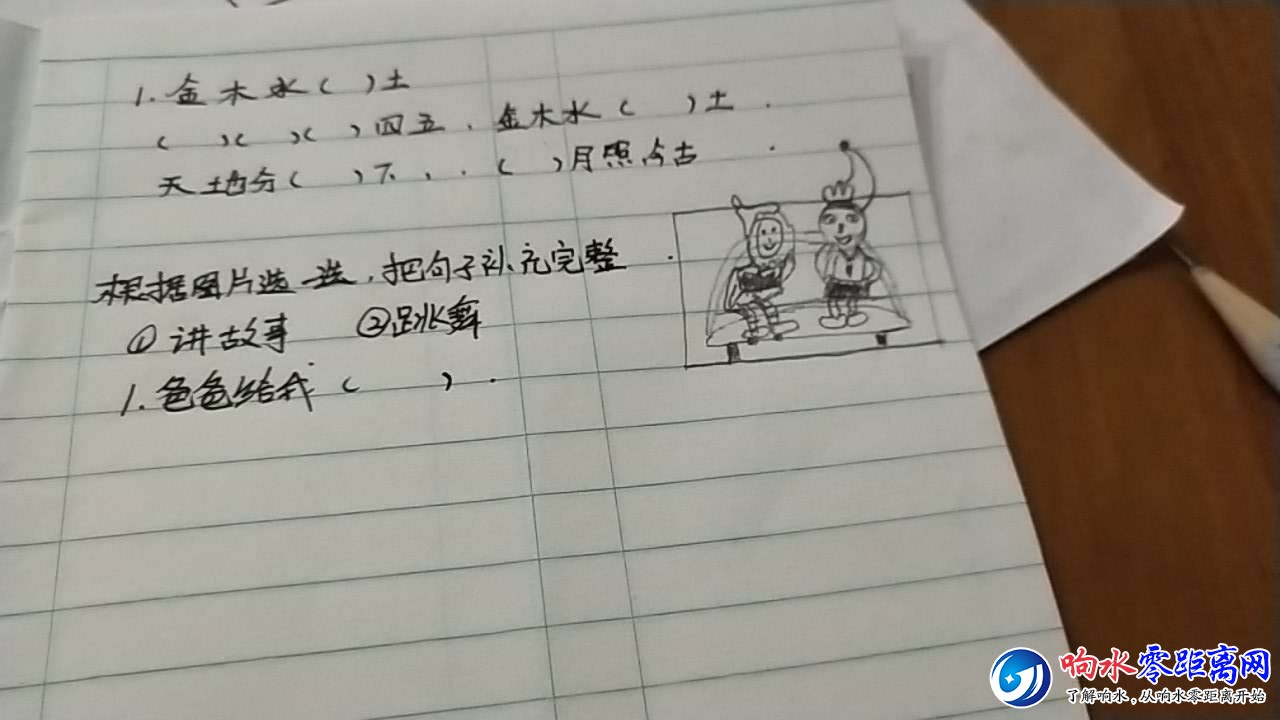 1. 金木水( )土
( )( )( )四五, 金木水( )土.
天地分( )下, . ( )月照今古
根据图片选一选,把句子补充完整.
①讲故事 ②跳舞
1. 爸爸给我( ).
响水零距离网
了解响水,从响水零距离开始